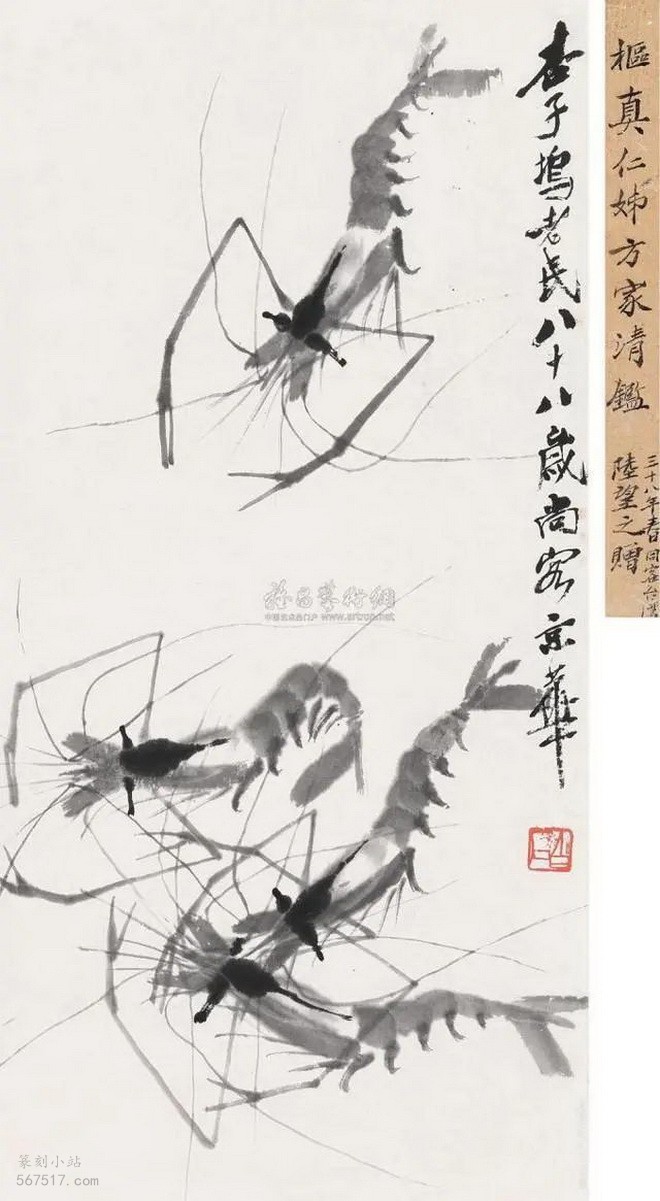 樞真仁姊方家清鑑
三十八年春同客台灣
陸望之贈
杏子塢老民八十八歲尚客京華
雅昌藝術網
中国艺术品门户 www.artron.net
篆刻小站
567517.com